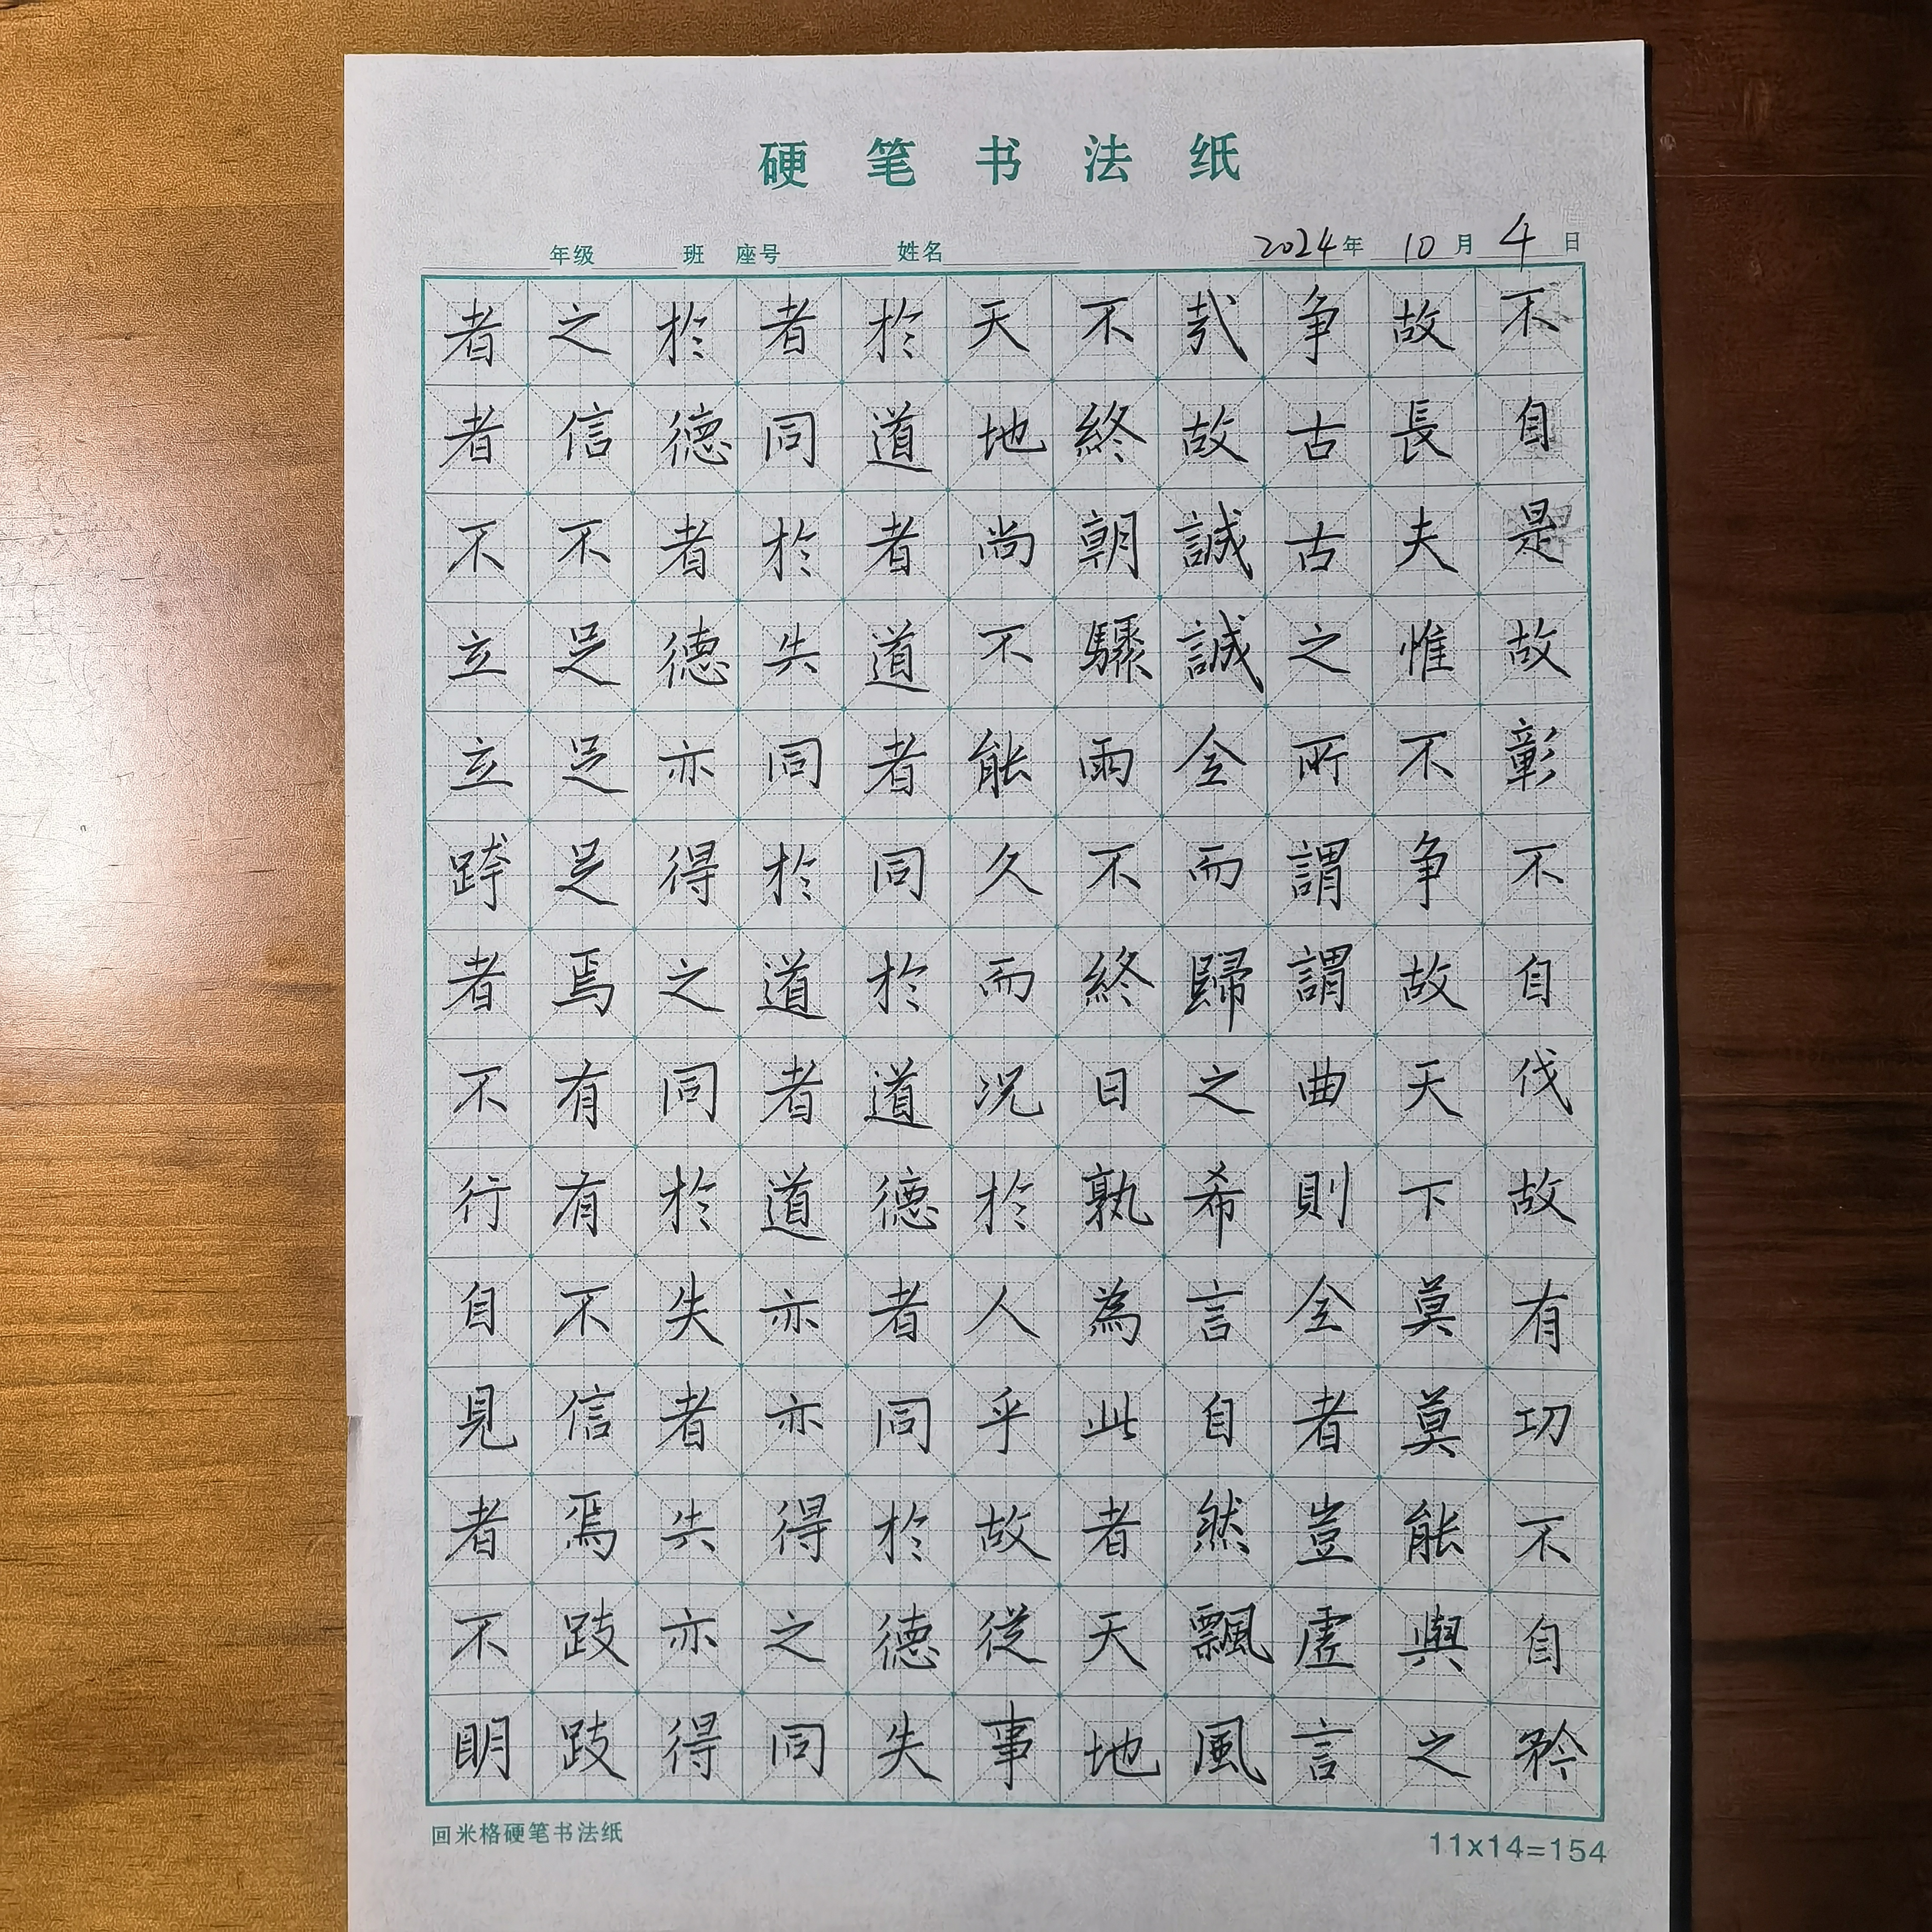 硬笔书法纸
年级 班 座号 姓名 2024年 10月 4日
不自是故彰不自伐故有功不自矜
故長夫惟不争故天下莫莫能與之
争古古之所謂謂曲則全者豈虚言
哉故誠誠全而歸之希言自然飄風
不終朝驟雨不終日孰為此者天地
天地尚不能久而况於人乎故従事
於道者道者同於道德者同於德失
者同於失同於道者道亦亦得之同
於德者德亦得之同於失者失亦得
之信不足足足焉有有不信焉跂跂
者者不立立跨者不行自見者不明
回米格硬笔书法纸
11x14=154